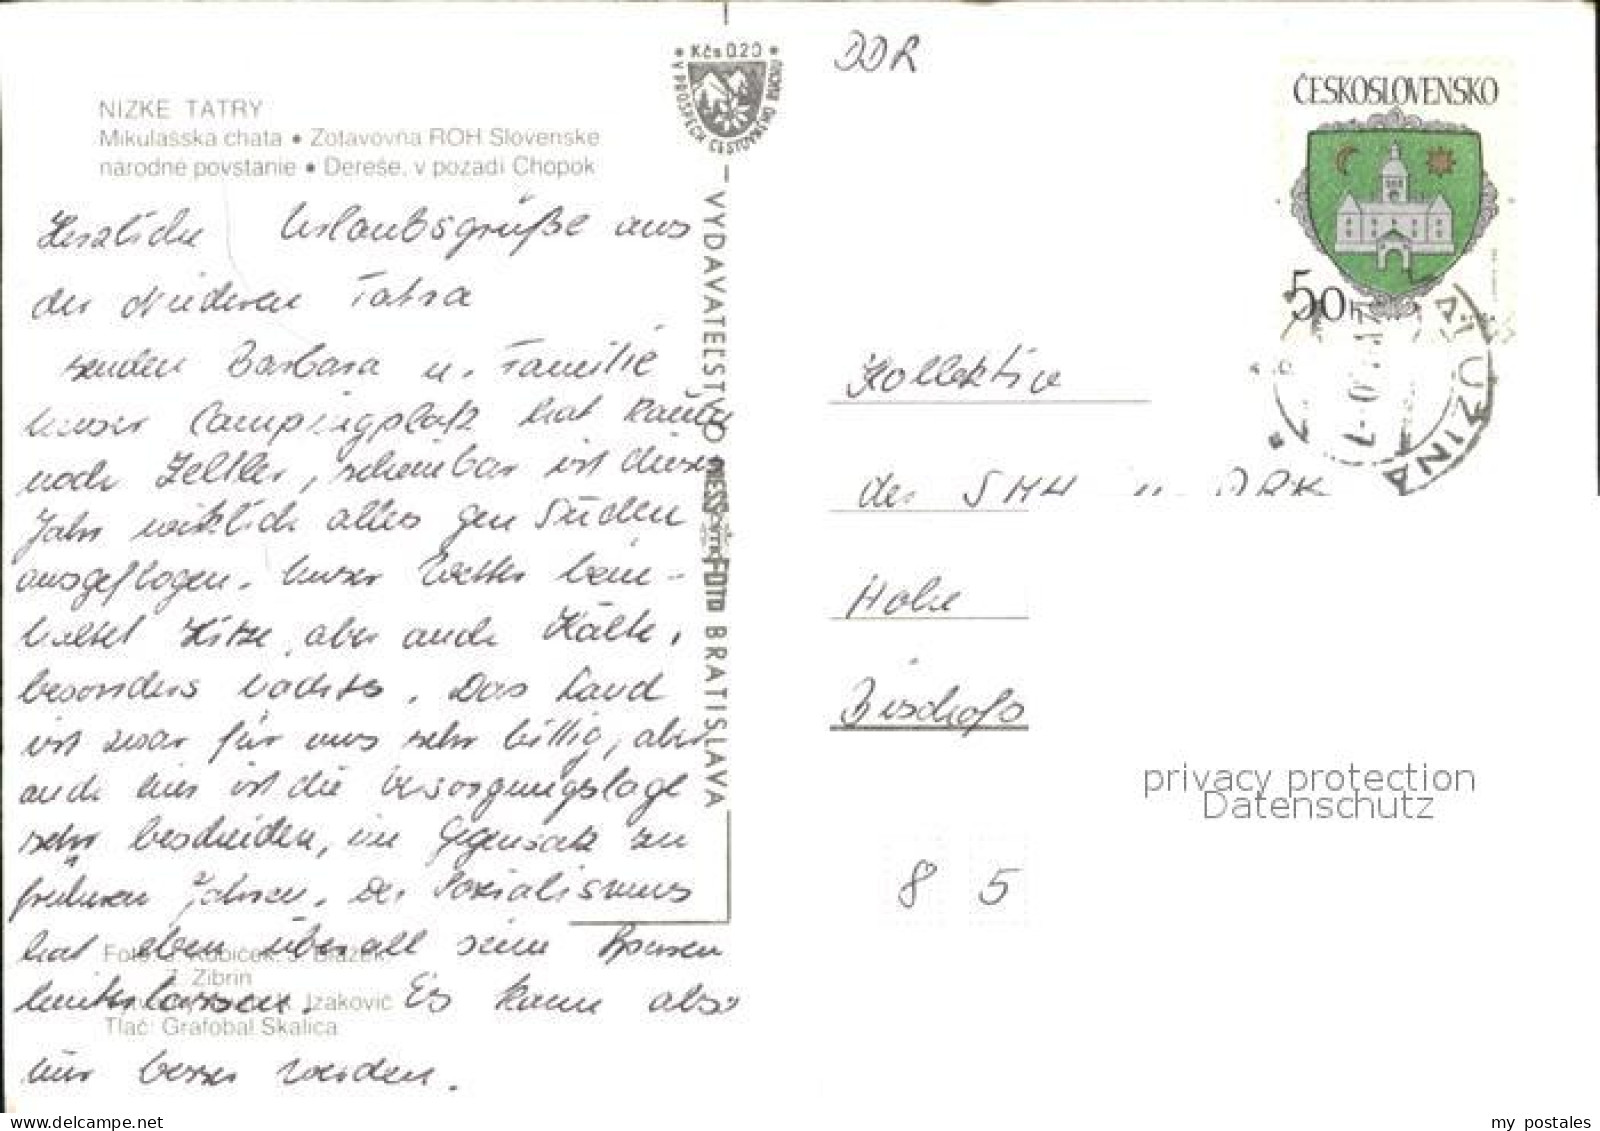 NIZKE TATRY
Mikulašska chata • Zotavovňa ROH Slovenske
národné povstanie • Dereše, v pozadí Chopok
Kčs 0.20
V PROSPECH CESTOVNÉHO RUCHU
VYDAVATEĽSTVO PRESSFOTO BRATISLAVA
Herzliche Urlaubsgrüße aus
der Niederen Tatra
senden Barbara u. Familie
Unser Campingplatz hat kaum
noch Zeltler, scheinbar ist dieses
Jahr wirklich alles gen Süden
ausgeflogen. Unser Wetter bein-
haltet Hitze, aber auch Kälte,
besonders nachts. Das Land
ist zwar für uns sehr billig, aber
auch hier ist die Versorgungslage
sehr bescheiden, im Gegensatz zu
früheren Jahren. Der Sozialismus
hat eben überall seine Spuren
hinterlassen. Es kann also
nur besser werden.
Foto: J. Kubíček, J. Blažek
Z. Zibrin
Izakovič
Tlač: Grafobal Skalica
DDR
ČESKOSLOVENSKO
50h
UZINA
Kollektiv
der SMH u. DRK
Hohe
Bischofs
privacy protection
Datenschutz
8 5
my postales